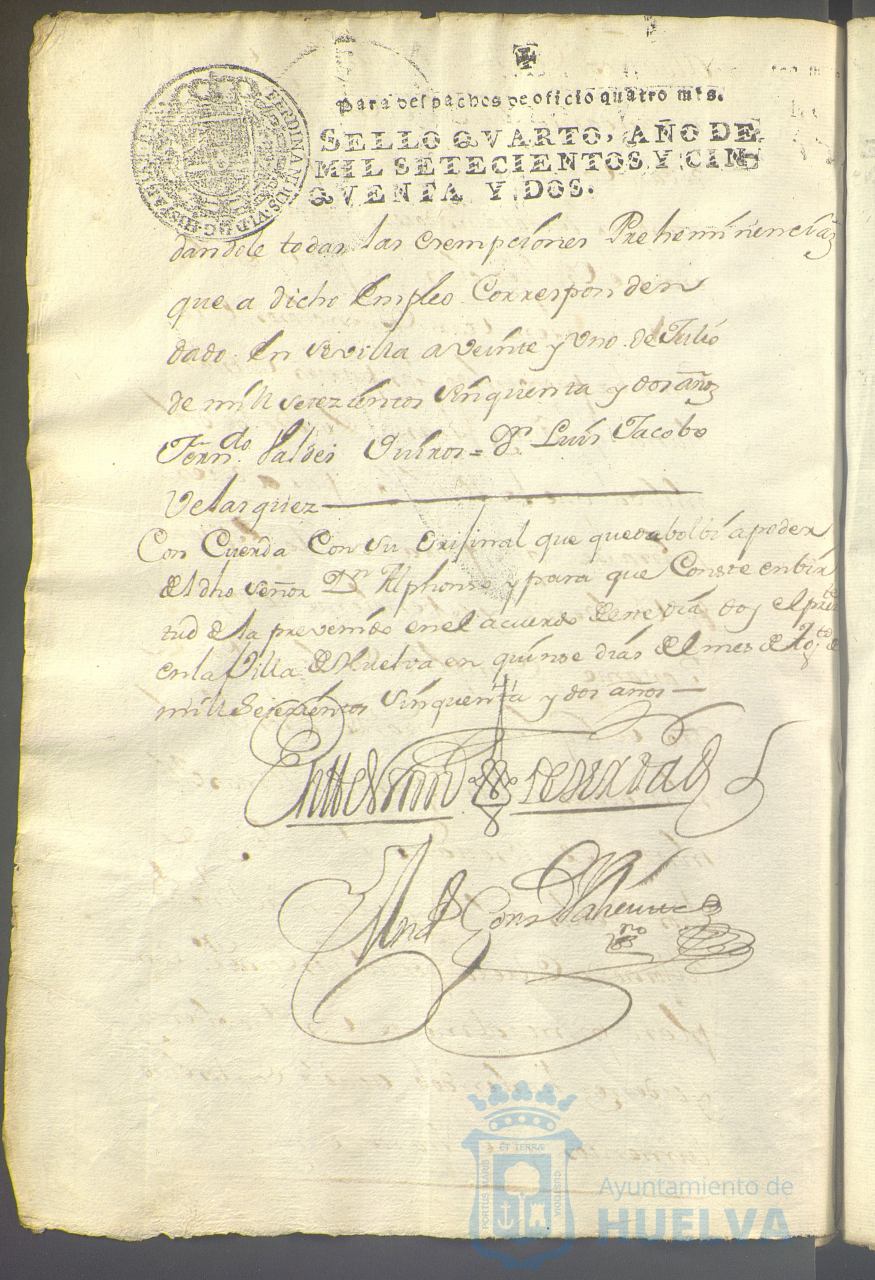 Para despachos de oficio quatro mrs.
SELLO QVARTO, AÑO DE
MIL SETECIENTOS Y CIN
QVENTA Y DOS.
FERDINANDUS VI D G HISPANIAR
dandole todas las exempciones Preheminencias
que a dicho Empleo Corresponden
dado en Sevilla a veinte y uno de Julio
de mill setezientos sinquenta y dos años
Ferndo. Valdes Quiros = Dn. Luis Jacobo
Velasquez
Con Cuerda Con su orijinal que bolbi a poder
del dho señor Dn Alphonso y para que Conste en bir
tud de la prevenido en el acuerdo de este dia doy el preste
en la Villa de Huelva en quinse dias del mes de Agto de
mill Setezientos sinquenta y dos años
ET TERRÆ
PORTUS MARIS
CUSTODIA
Ayuntamiento de
HUELVA